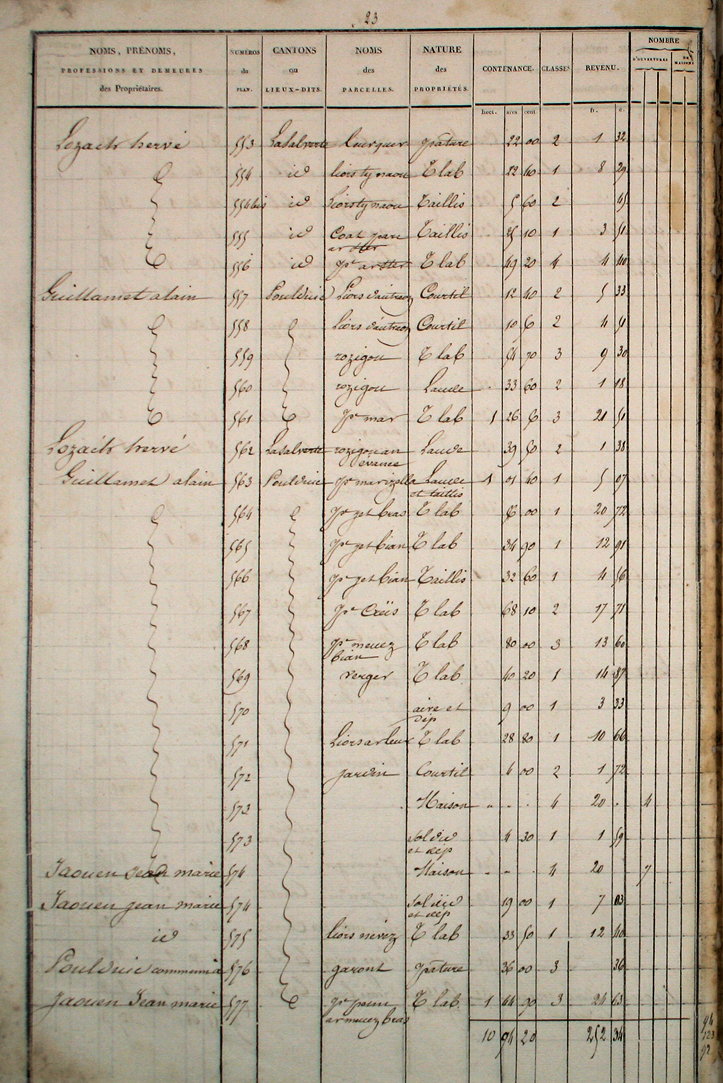 23
NOMS, PRÉNOMS, PROFESSIONS ET DEMEURES des Propriétaires. NUMÉROS du PLAN. CANTONS ou LIEUX-DITS. NOMS des PARCELLES. NATURE des PROPRIÉTÉS. CONTENANCE. CLASSES REVENU. NOMBRE D'OUVERTURES DE MAISONS
hect. ares cent fr. c.
Lozach hervé 553 Lasalverte pature 22 00 2 1 32
554 id liorstynaou T lab 22 10 1 8 29
554bis id liorstynaou Taillis 5 60 2 45
555 id Coat parc ar ster Taillis 25 10 1 3 51
556 id pc ar ster T lab 49 20 4 4 40
Guillamet alain 557 Poulduic Liors dautreou Courtil 12 40 2 5 33
558 liors dautreou Courtil 10 50 2 4 51
559 rozigou T lab 54 70 3 9 30
560 rozigou Lande 33 60 2 1 18
561 pc mar T lab 1 26 50 3 21 51
Lozach hervé 562 Lasalverte rozigou an Lande 39 50 2 1 38
Guillamet alain 563 Poulduic Lande et taillis 1 01 40 1 5 07
564 pc jet bras T lab 56 00 1 20 72
565 pc jet bian T lab 34 90 1 12 91
566 pc jet bian Taillis 32 60 1 4 56
567 T lab 68 10 2 17 71
568 pc menez bian T lab 80 00 3 13 60
569 verger T lab 40 20 1 14 87
570 aire et dép 9 00 1 3 33
571 Liors ar leur T lab 28 80 1 10 66
572 jardin Courtil 4 00 2 1 72
573 Maison 4 20 4
573 sol du et dép 4 30 1 1 59
Jaouen Jean marie 574 Maison 4 20 7
Jaouen jean marie 574 sol du et dép 19 00 1 7 03
id 575 liors névez T lab 33 50 1 12 40
Poulduic communa 576 garont pature 36 00 3 36
Jaouen Jean marie 577 ar menez bras T lab 1 44 90 3 24 63
10 94 20 252 34